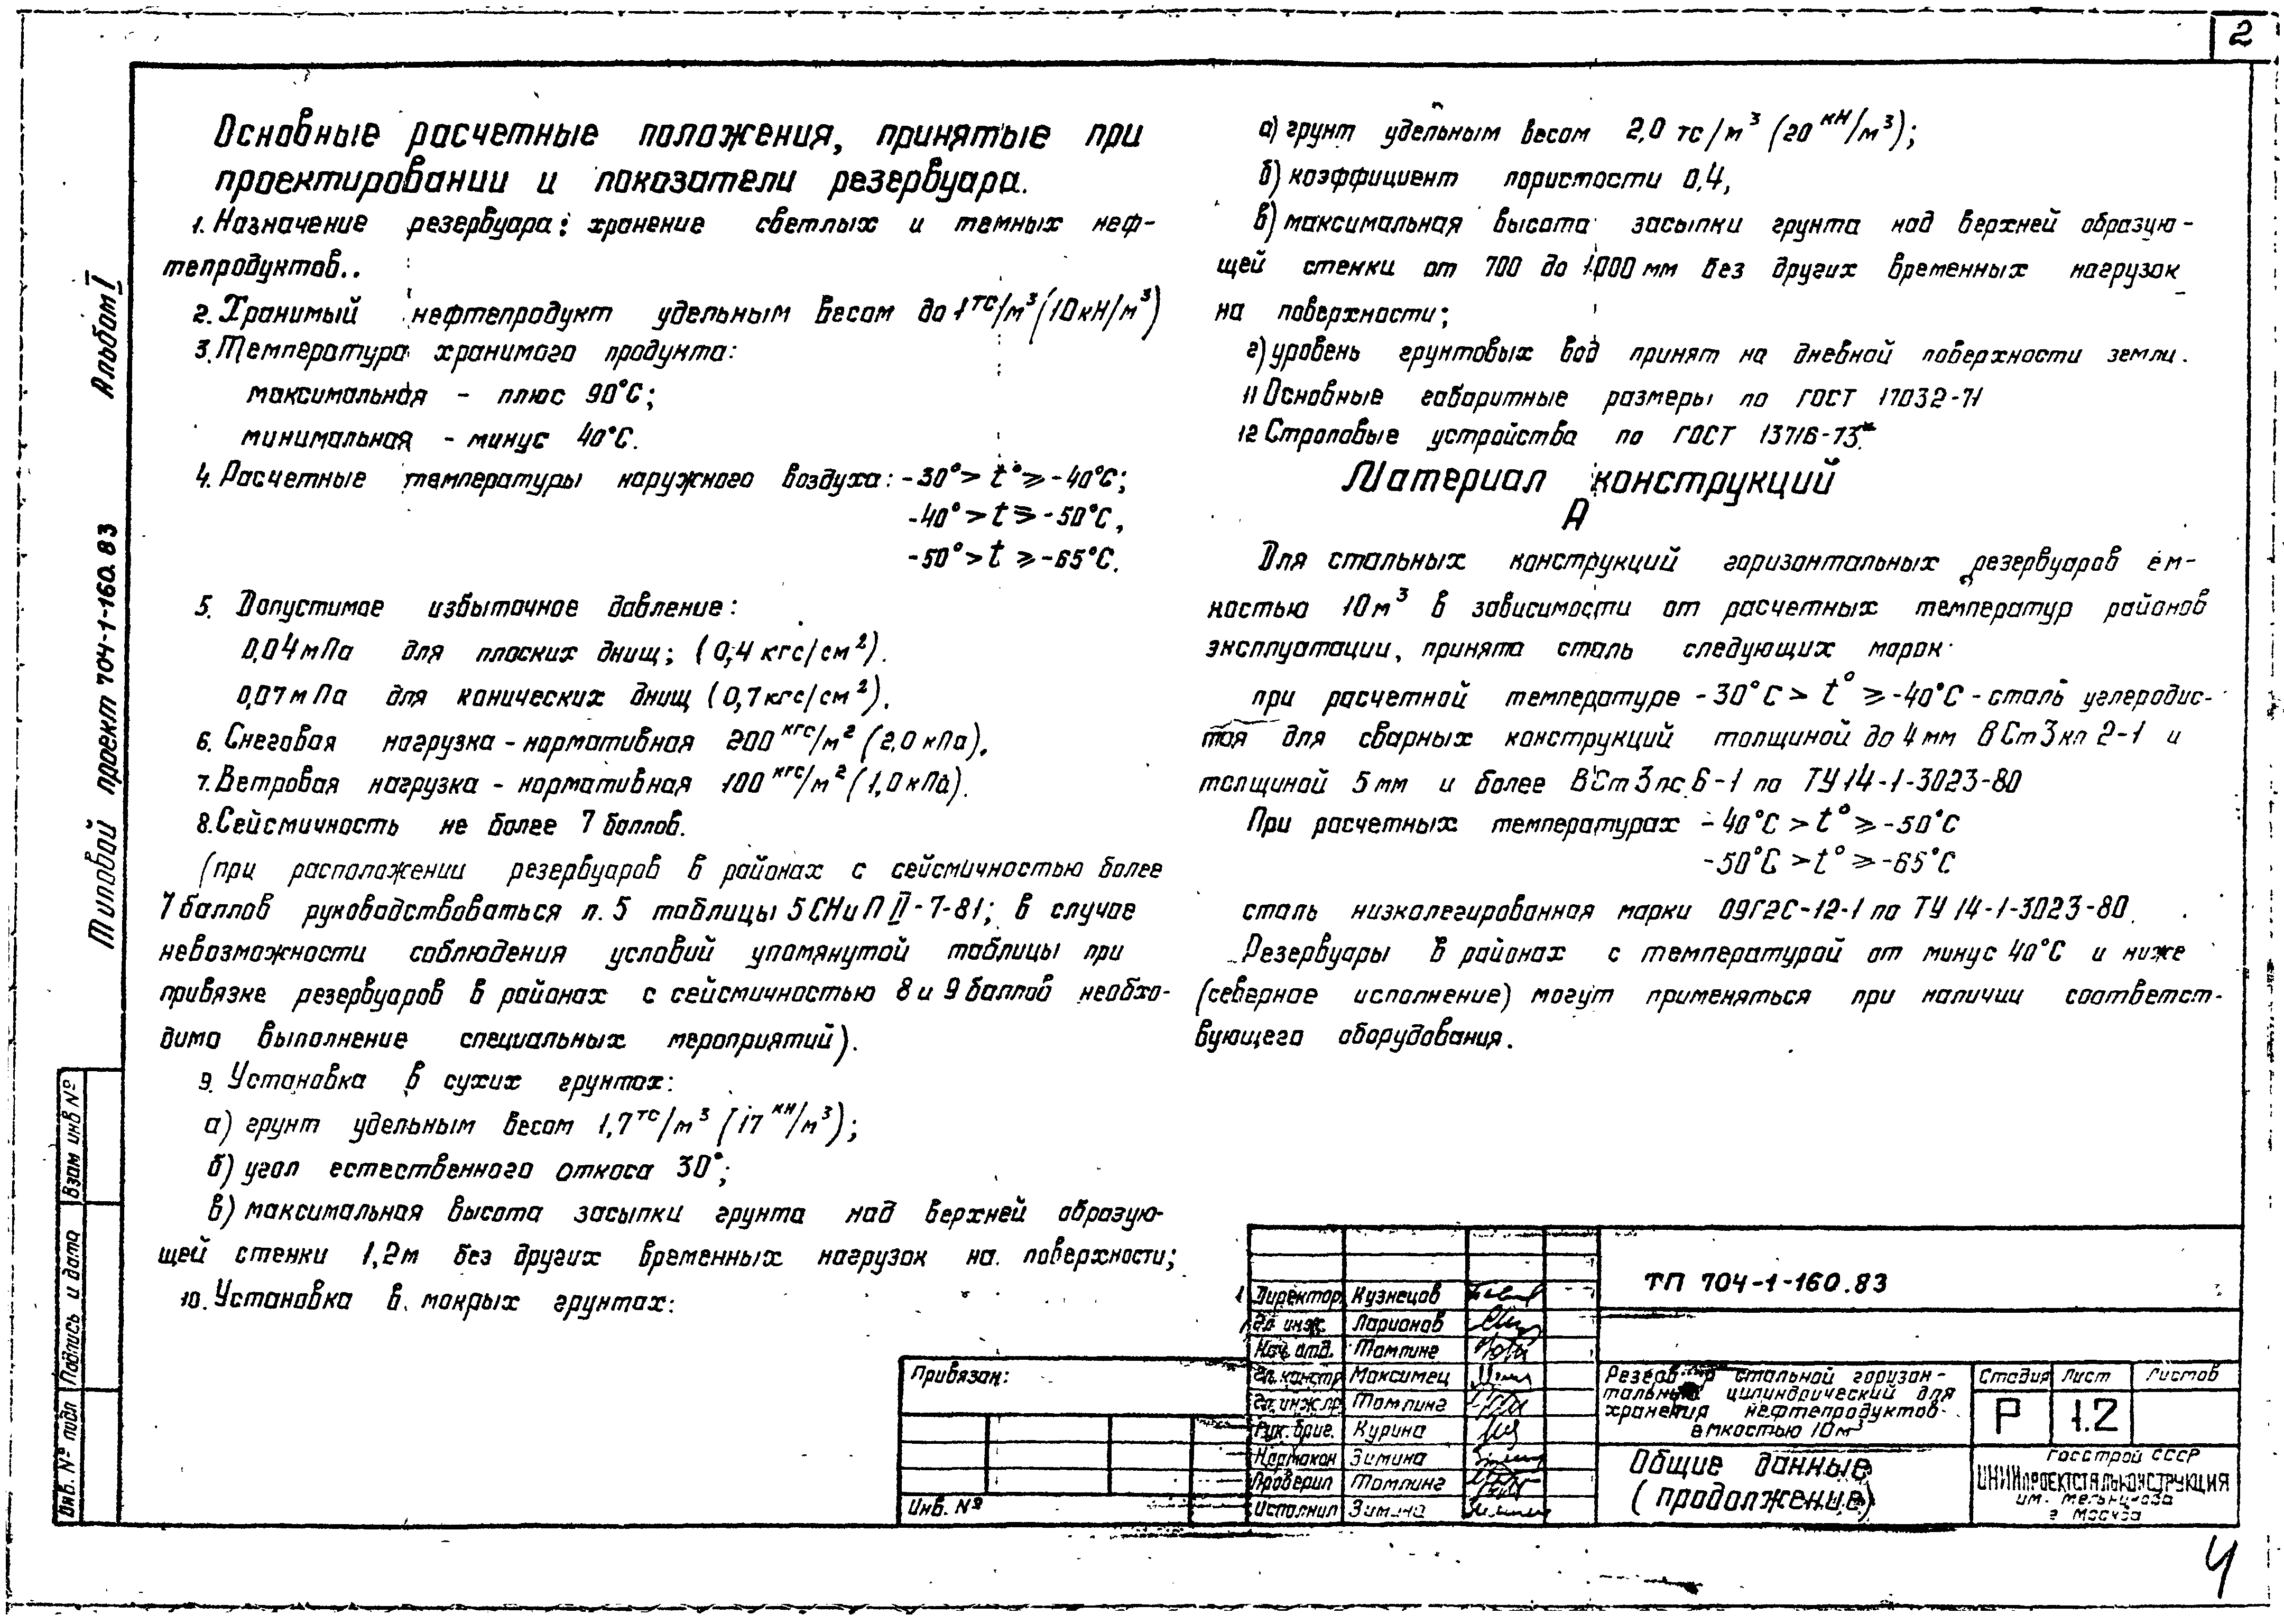 2
Основные расчетные положения, принятые при
проектировании и показатели резервуара.
1. Назначение резервуара: хранение светлых и темных неф-
тепродуктов..
2. Хранимый нефтепродукт удельным весом до 1 тс/м³ (10 кН/м³)
3. Температура хранимого продукта:
максимальная - плюс 90°С;
минимальная - минус 40°С.
4. Расчетные температуры наружного воздуха: -30° > t° ⩾ -40°С;
-40° > t ⩾ -50°С,
-50° > t ⩾ -65°С.
5. Допустимое избыточное давление:
0,04 мПа для плоских днищ; (0,4 кгс/см²).
0,07 мПа для конических днищ (0,7 кгс/см²).
6. Снеговая нагрузка - нормативная 200 кгс/м² (2,0 кПа).
7. Ветровая нагрузка - нормативная 100 кгс/м² (1,0 кПа).
8. Сейсмичность не более 7 баллов.
(при расположении резервуаров в районах с сейсмичностью более
7 баллов руководствоваться п. 5 таблицы 5 СНиП II-7-81; в случае
невозможности соблюдения условий упомянутой таблицы при
привязке резервуаров в районах с сейсмичностью 8 и 9 баллов необхо-
димо выполнение специальных мероприятий).
9. Установка в сухих грунтах:
а) грунт удельным весом 1,7 тс/м³ (17 кН/м³);
б) угол естественного откоса 30°;
в) максимальная высота засыпки грунта над верхней образую-
щей стенки 1,2м без других временных нагрузок на поверхности;
10. Установка в мокрых грунтах:
а) грунт удельным весом 2,0 тс/м³ (20 кН/м³);
б) коэффициент пористости 0,4,
в) максимальная высота засыпки грунта над верхней образую-
щей стенки от 700 до 1000 мм без других временных нагрузок
на поверхности;
г) уровень грунтовых вод принят на дневной поверхности земли.
11 Основные габаритные размеры по ГОСТ 17032-71
12 Строповые устройства по ГОСТ 13716-73*
Материал конструкций
А
Для стальных конструкций горизонтальных резервуаров ем-
костью 10 м³ в зависимости от расчетных температур районов
эксплуатации, принята сталь следующих марок
при расчетной температуре -30°С > t° ⩾ -40°С - сталь углеродис-
тая для сварных конструкций толщиной до 4 мм ВСт3кп2-1 и
толщиной 5 мм и более ВСт3пс6-1 по ТУ 14-1-3023-80
При расчетных температурах -40°С > t° ⩾ -50°С
-50°С > t° ⩾ -65°С
сталь низколегированная марки 09Г2С-12-1 по ТУ 14-1-3023-80.
Резервуары в районах с температурой от минус 40°С и ниже
(северное исполнение) могут применяться при наличии соответст-
вующего оборудования.
Альбом I
Типовой проект 704-1-160.83
Взам инв №
Подпись и дата
Инв. № подл
Привязан:
Инв. №
Директор Кузнецов
Гл инж. Ларионов
Нач. отд. Томпинг
Гл. констр Максимец
Гл. инж. пр Томпинг
Рук. бриг. Курина
Нормокон Зимина
Проверил Томпинг
Исполнил Зимина
ТП 704-1-160.83
стальной горизон-
тальный цилиндрический для
хранения нефтепродуктов
емкостью 10м³
Стадия Лист Листов
Р 1.2
Общие данные
(продолжение)
Госстрой СССР
ЦНИИпроектстальконструкция
им. Мельникова
г Москва
4